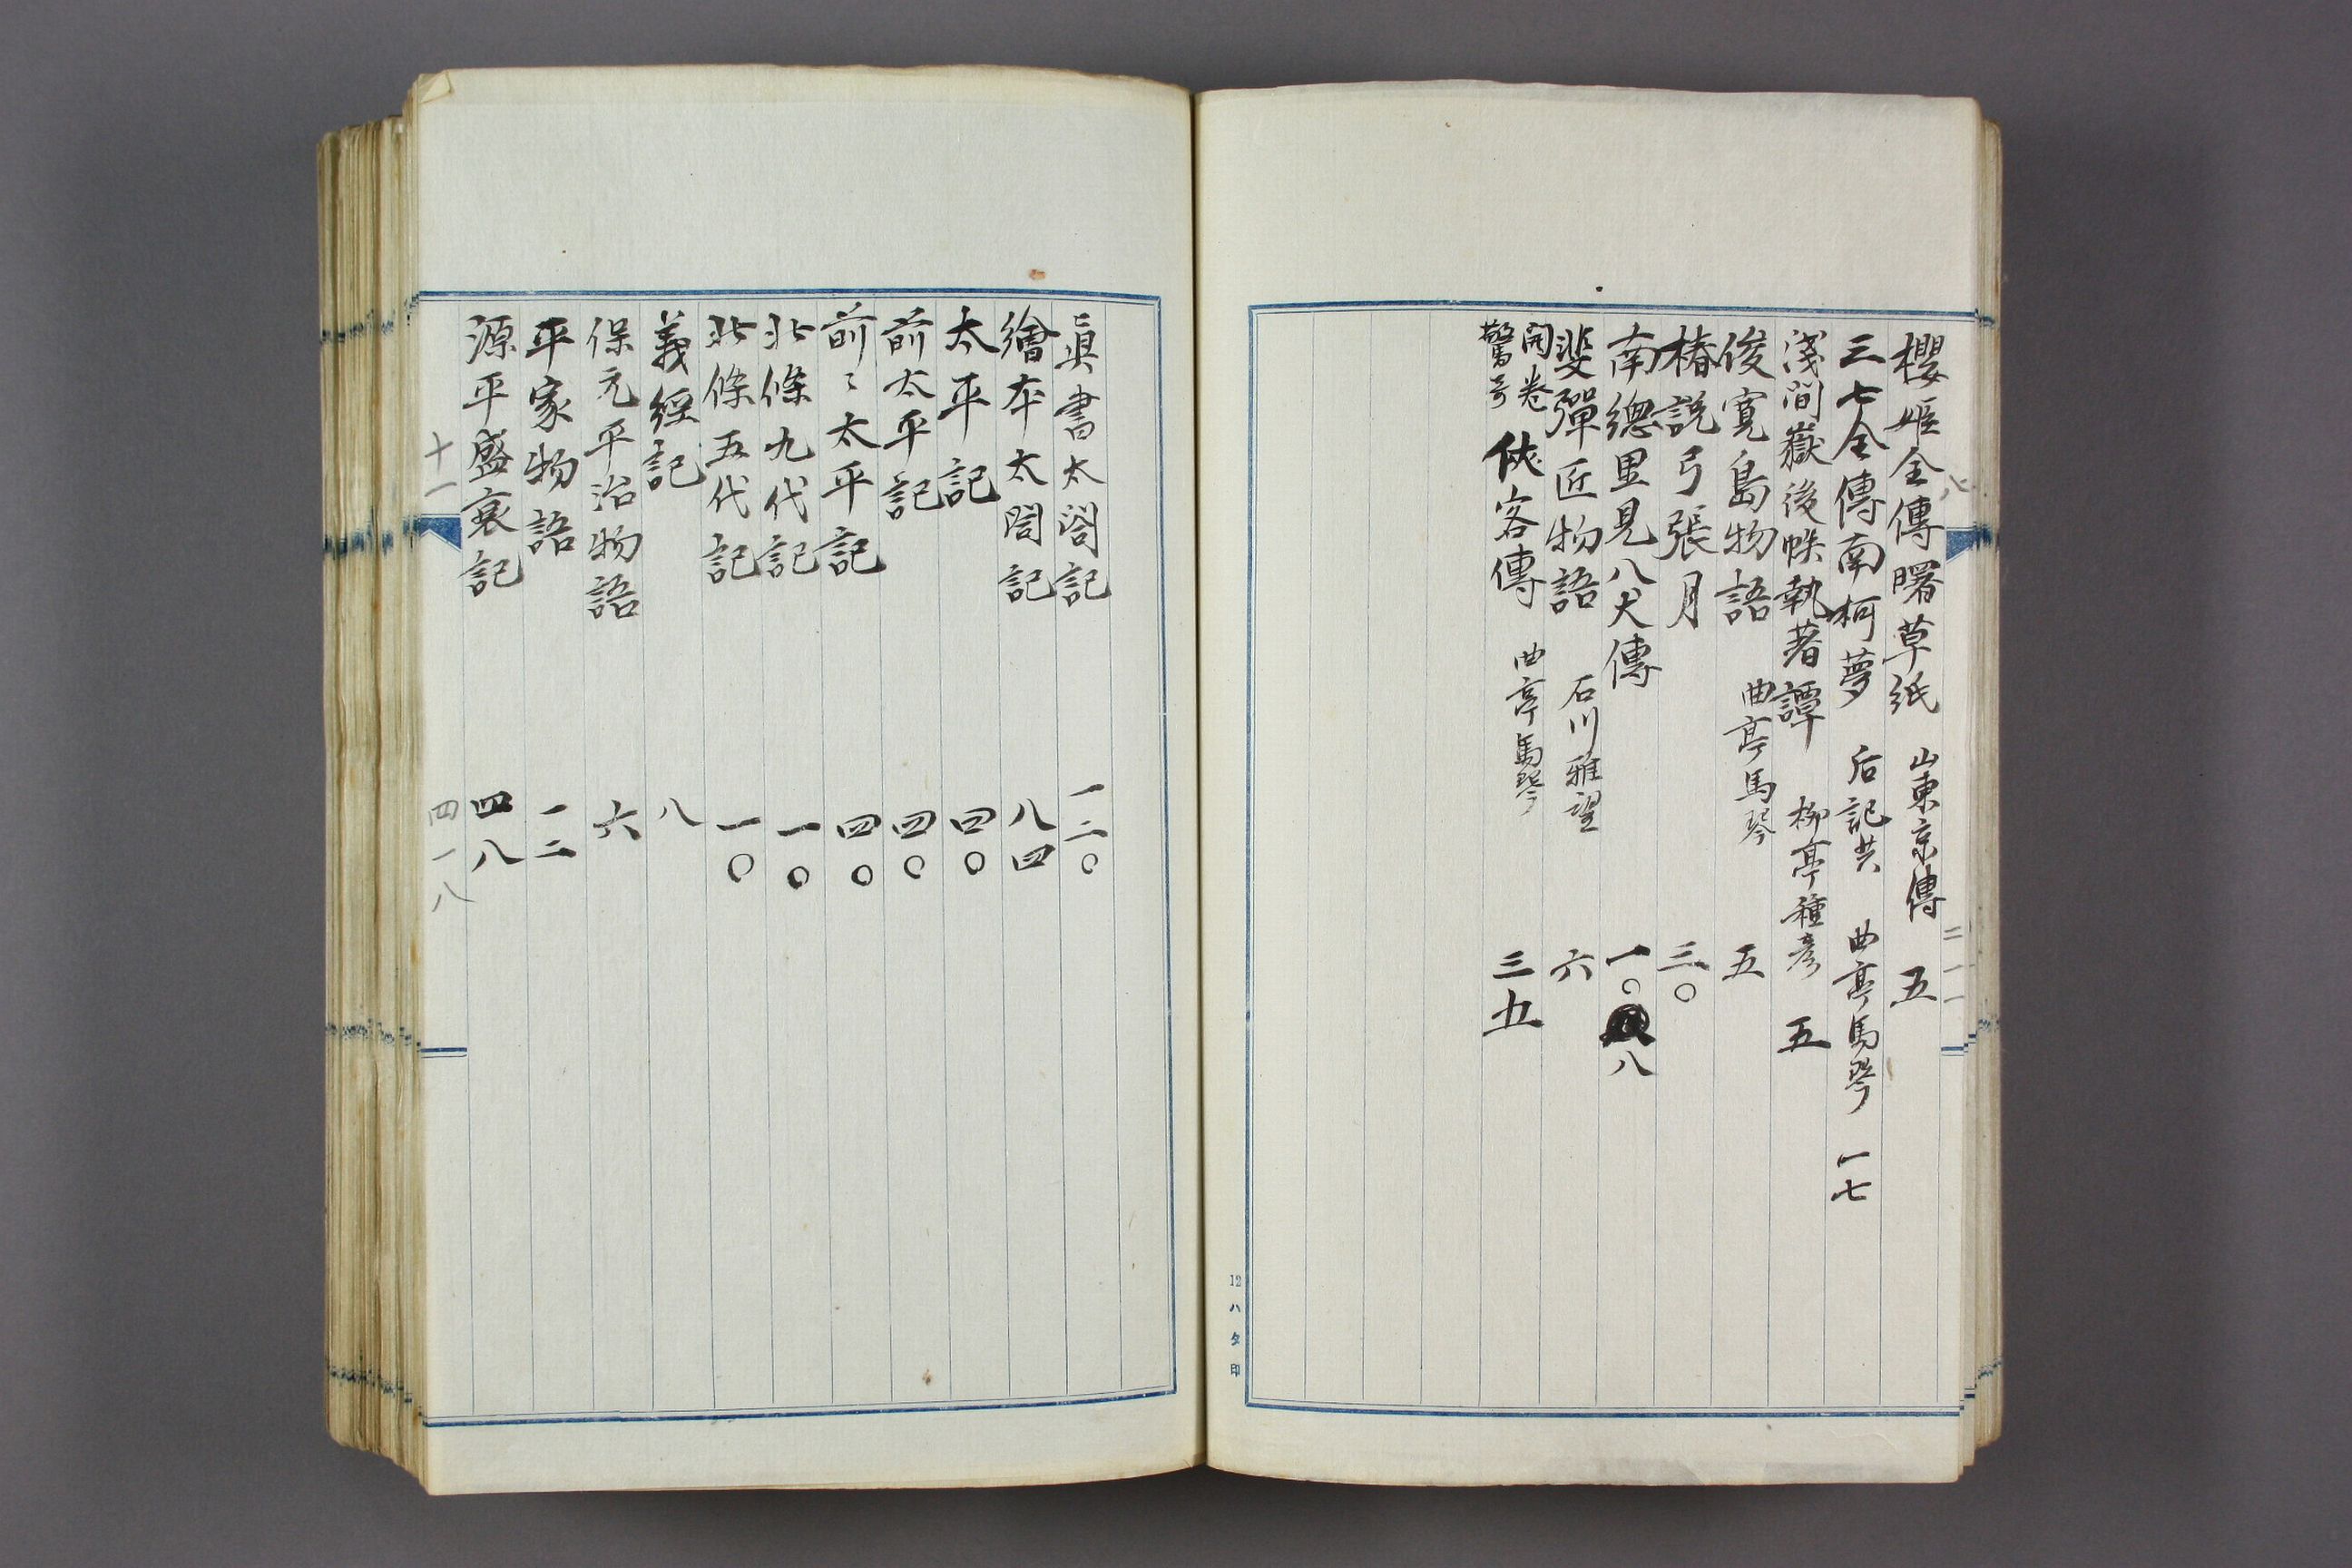 櫻姬全傳曙草紙 山東京傳 五
三七全傳南柯夢 后記共 曲亭馬琴 一七
淺間嶽後帙執著譚 柳亭種彥 五
俊寛島物語 曲亭馬琴 五
椿説弓張月 三〇
南總里見八犬傳 一〇八
斐彈匠物語 石川雅望 六
開卷驚奇 俠客傳 曲亭馬琴 三五
八 二一一
12 ハタ印
眞書太閤記 一二〇
繪本太閤記 八四
太平記 四〇
前太平記 四〇
前〻太平記 四〇
北條九代記 一〇
北條五代記 一〇
義經記 八
保元平治物語 六
平家物語 一二
源平盛衰記 四八
十一 四一八